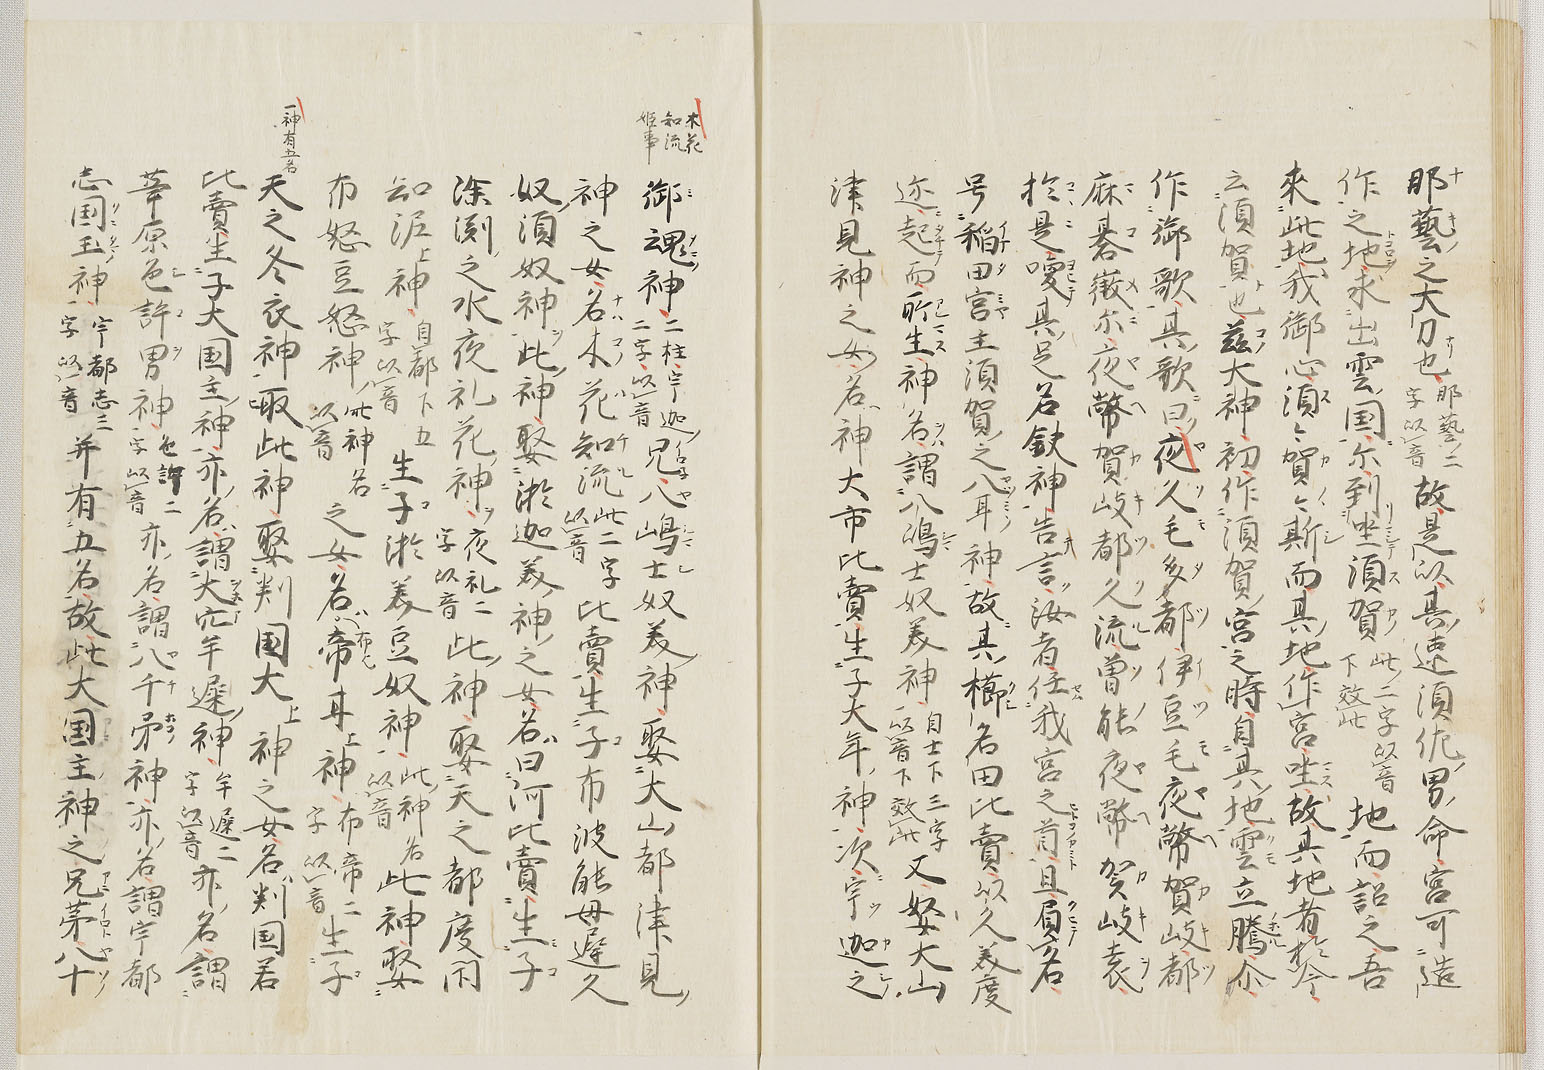 那藝之大刀也那藝二字以音故是以其速須佐男命宮可造
作之地求出雲国尓到坐須賀此二字以音下效此地而詔之吾
來此地我御心須々賀々斯而其地作宮坐故其地者於今
云須賀也茲大神初作須賀宮之時自其地雲立騰尓
作御歌其歌曰夜久毛多都伊豆毛夜幣賀岐都
麻碁微尓夜幣賀岐都久流曽能夜幣賀岐袁
於是喚其足名鈇神告言汝者任我宮之首且負名
号稲田宮主須賀之八耳神故其櫛名田比賣以久美度
迩起而所生神名謂八嶋士奴美神自士下三字以音下效此又娶大山
津見神之女名神大市比賣生子大年神次宇迦之
木花知流姫事
御魂神二柱宇迦二字以音兄八嶋士奴美神娶大山都津見
神之女名木花知流此二字以音比賣生子布波能母遲久
奴須奴神此神娶淤迦美神之女名曰河比賣生子
深渕之水夜礼花神夜礼二字以音此神娶天之都度閇
知泥上神自都下五字以音生子淤美豆奴神此神名以音此神娶
布怒豆怒神此神名以音之女名布帝耳上神布帝二字以音生子
一神有五名
天之冬衣神取此神娶刺国大上神之女名刺国若
比賣生子大国主神亦名謂大穴牟遲神牟遲二字以音亦名謂
葦原色許男神色許二字以音亦名謂八千矛神亦名謂宇都
志国玉神宇都志三字以音并有五名故此大国主神之兄苐八十